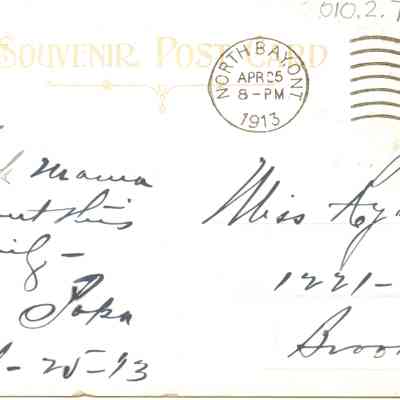 010.2.
SOUVENIR POST CARD
NORTH BAY, ONT
APR 25
8-PM
1913
Mama
out this
-
Papa
- 25-13
Miss
1221-
Broo